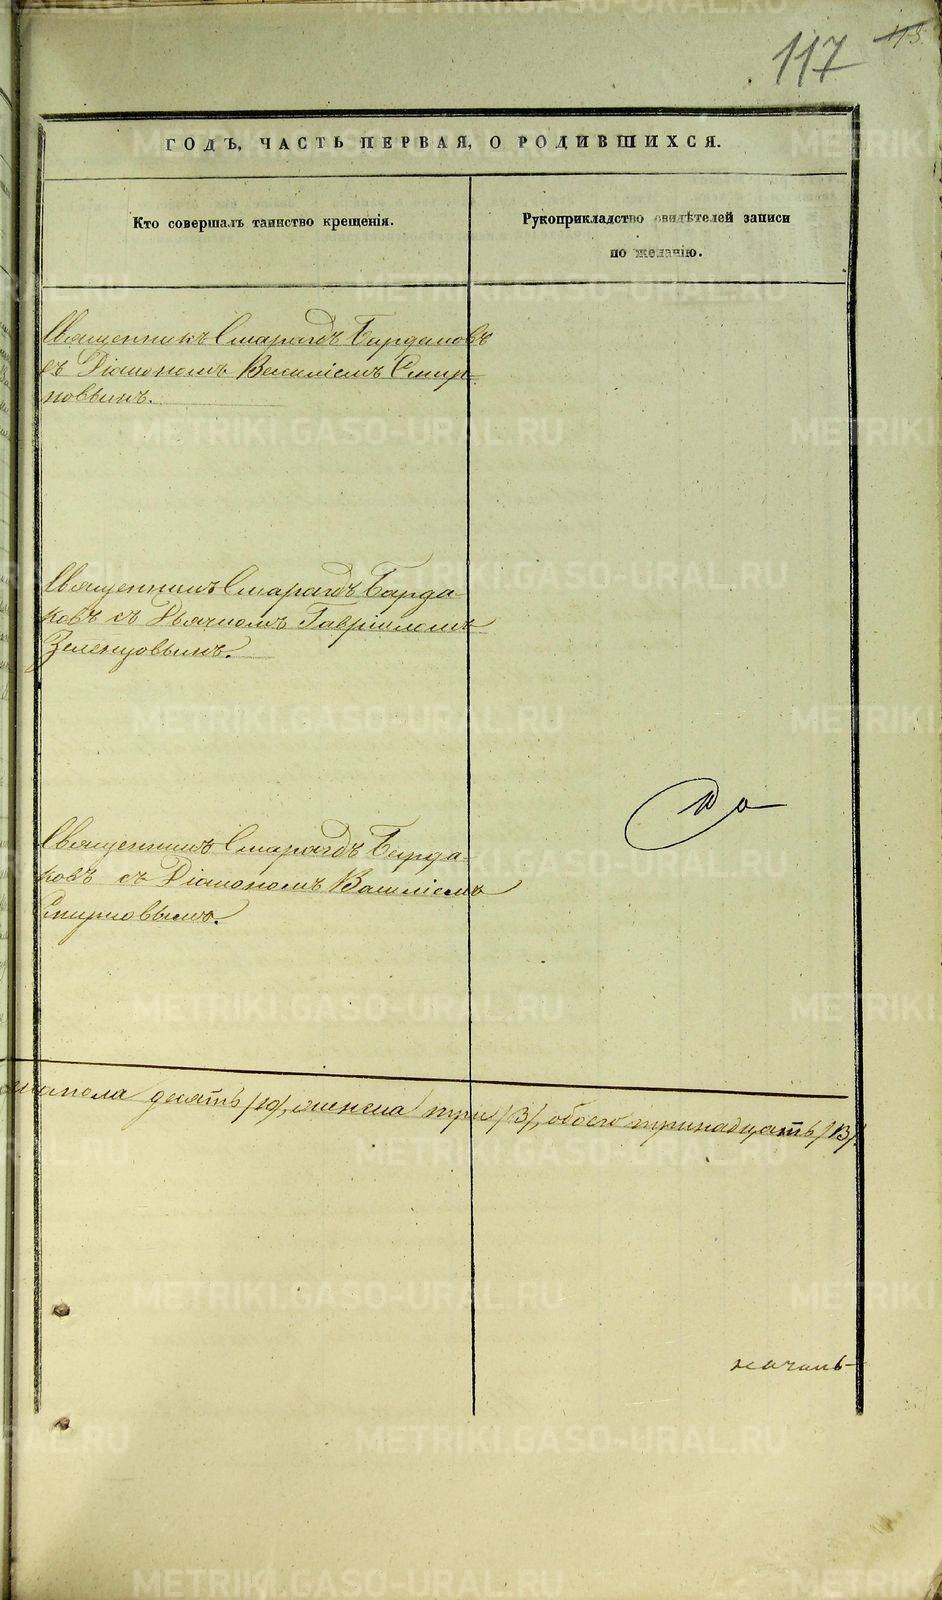 117 113
ГОДЪ, ЧАСТЬ ПЕРВАЯ, О РОДИВШИХСЯ.
Кто совершалъ таинство крещенія.
Рукоприкладство свидѣтелей записи
по желанію.
Священникъ Смарагдъ Бардаковъ
съ Діакономъ Василіемъ Смир-
новымъ.
Священникъ Смарагдъ Барда-
ковъ съ Дьячкомъ Гавріиломъ
Зеленцовымъ.
Священникъ Смарагдъ Барда-
ковъ съ Діакономъ Василіемъ
Смирновымъ.
десять /10/, женска три /3/, обоего тринадцать /13/.
началь-
METRIKI.GASO-URAL.RU